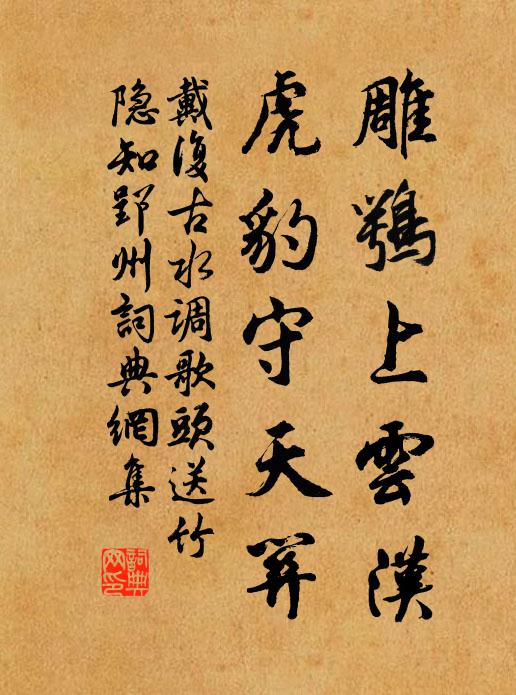 雕鶚上雲漢
虎豹守天關
戴復古水调歌頭送竹
隐知郢州詞典網集
詞典
网印